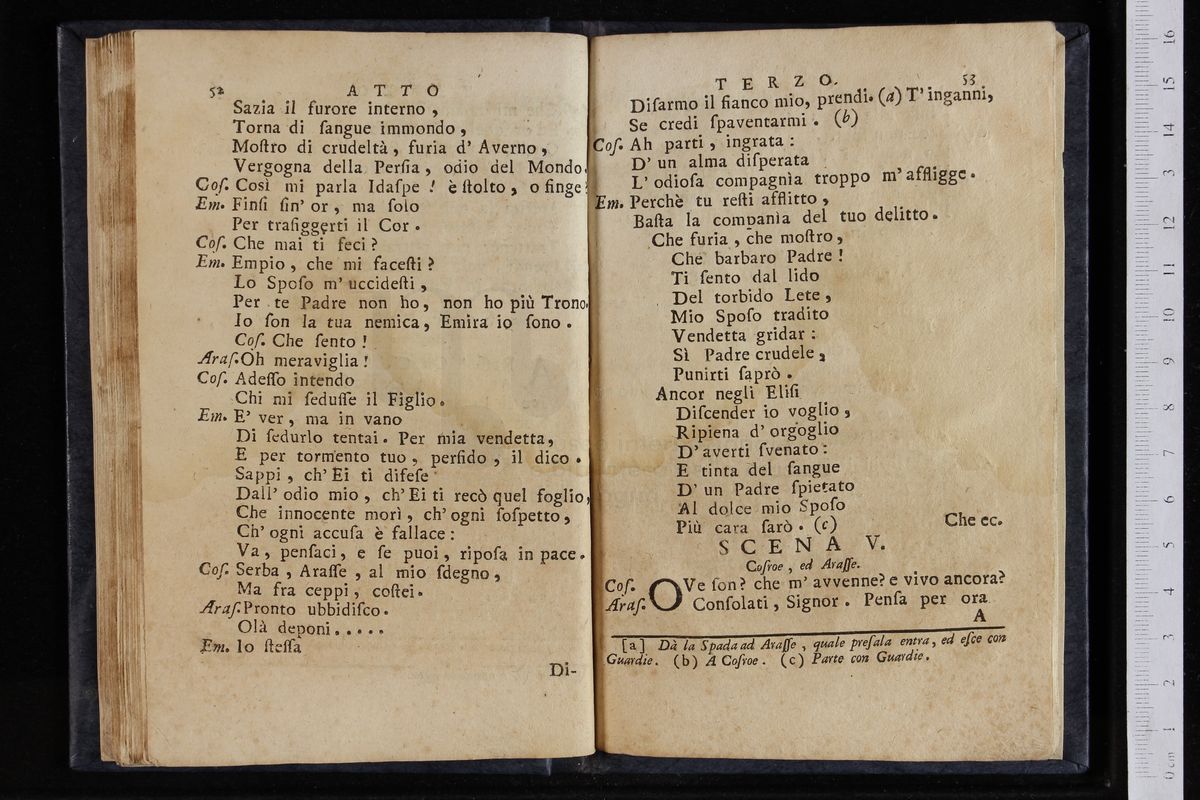 52 ATTO
Sazia il furore interno,
Torna di ſangue immondo,
Moſtro di crudeltà, furia d' Averno,
Vergogna della Perſia, odio del Mondo.
Coſ. Così mi parla Idaſpe! è ſtolto, o finge?
Em. Finſi ſin' or, ma ſolo
Per trafiggerti il Cor.
Coſ. Che mai ti feci?
Em. Empio, che mi faceſti?
Lo Spoſo m' uccideſti,
Per te Padre non ho, non ho più Trono.
Io ſon la tua nemica, Emira io ſono.
Coſ. Che ſento!
Araſ. Oh meraviglia!
Coſ. Adeſſo intendo
Chi mi ſeduſſe il Figlio.
Em. E' ver, ma in vano
Di ſedurlo tentai. Per mia vendetta,
E per tormento tuo, perfido, il dico.
Sappi, ch' Ei ti difeſe
Dall' odio mio, ch' Ei ti recò quel foglio,
Che innocente morì, ch' ogni ſoſpetto,
Ch' ogni accuſa è fallace:
Va, penſaci, e ſe puoi, ripoſa in pace.
Coſ. Serba, Araſſe, al mio ſdegno,
Ma fra ceppi, coſtei.
Araſ. Pronto ubbidiſco.
Olà deponi.....
Em. Io ſteſſa
Di-
TERZO. 53
Diſarmo il fianco mio, prendi. (a) T' inganni,
Se credi ſpaventarmi. (b)
Coſ. Ah parti, ingrata:
D' un alma diſperata
L' odioſa compagnìa troppo m' affligge.
Em. Perchè tu reſti afflitto,
Baſta la companìa del tuo delitto.
Che furia, che moſtro,
Che barbaro Padre!
Ti ſento dal lido
Del torbido Lete,
Mio Spoſo tradito
Vendetta gridar:
Sì Padre crudele,
Punirti ſaprò.
Ancor negli Eliſi
Diſcender io voglio,
Ripiena d' orgoglio
D' averti ſvenato:
E tinta del ſangue
D' un Padre ſpietato
Al dolce mio Spoſo
Più cara ſarò. (c) Che ec.
SCENA V.
Coſroe, ed Araſſe.
Coſ. OVe ſon? che m' avvenne? e vivo ancora?
Araſ. Conſolati, Signor. Penſa per ora
A
[a] Dà la Spada ad Araſſe, quale preſala entra, ed eſce con
Guardie. (b) A Coſroe. (c) Parte con Guardie.
0 cm 1 2 3 4 5 6 7 8 9 10 11 12 13 14 15 16